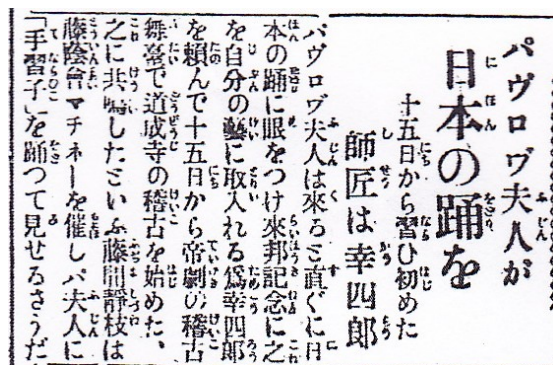 パヴロヴ夫人が
日本の踊を
十五日から習ひ初めた
師匠は幸四郎
パヴロヴ夫人は來ると直ぐに日
本の踊に眼をつけ來邦記念に之
を自分の藝に取入れる爲幸四郎
を頼んで十五日から帝劇の稽古
舞臺で道成寺の稽古を始めた、
之に共鳴したといふ藤間靜枝は
藤陰會マチネーを催しパ夫人に
「手習子」を踊つて見せるさうだ